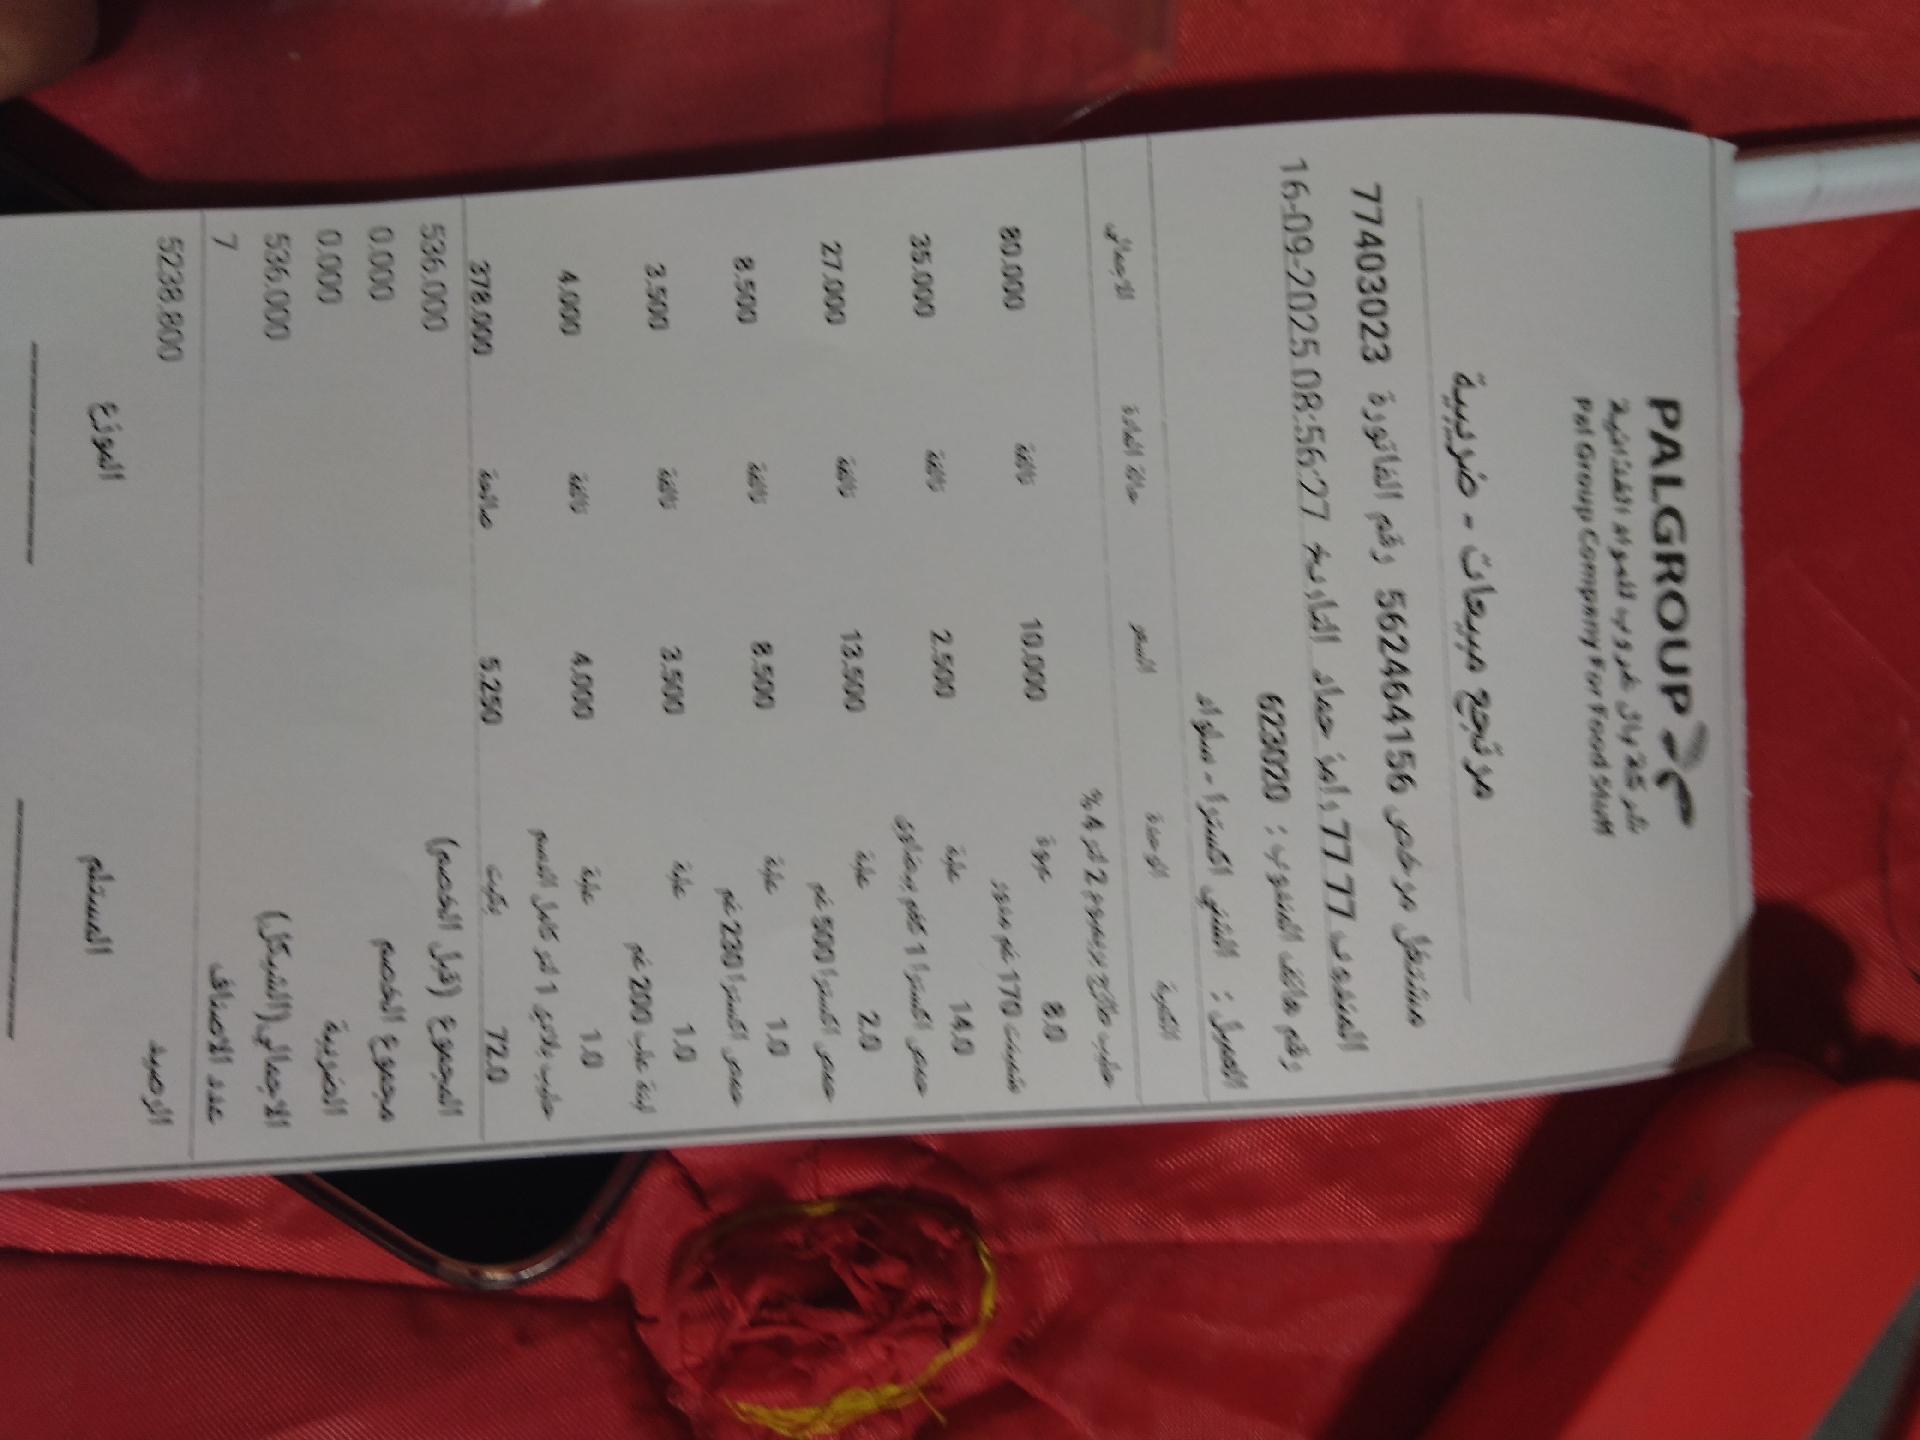 PALGROUP
شركة بال غروب للمواد الغذائية
Pal Group Company For Food Stuff
مرتجع مبيعات - ضريبية
مشتغل مرخص 562464156 رقم الفاتورة 77403023
المندوب 7777 رامز حماد التاريخ 16-09-2025 08:56:27
رقم هاتف المندوب : 623020
العميل : الشني اكسترا - سلواد
الكمية الوحدة السعر حالة المادة الاجمالي
حليب طازج بريميوم 2 لتر 4%
8.0 عبوة 10.000 تالفة 80.000
شمينت 170 غم مدور
14.0 علبة 2.500 تالفة 35.000
حمص اكسترا 1 كغم بيضاوي
2.0 علبة 13.500 تالفة 27.000
حمص اكسترا 500 غم
1.0 علبة 8.500 تالفة 8.500
حمص اكسترا 230 غم
1.0 علبة 3.500 تالفة 3.500
لبنة علب 200 غم
1.0 علبة 4.000 تالفة 4.000
حليب بلادي 1 لتر كامل الدسم
72.0 بكيت 5.250 صالحة 378.000
المجموع (قبل الخصم) 536.000
مجموع الخصم 0.000
الضريبة 0.000
الاجمالي (الشيكل) 536.000
عدد الاصناف 7
الرصيد 5238.800
المستلم الموزع